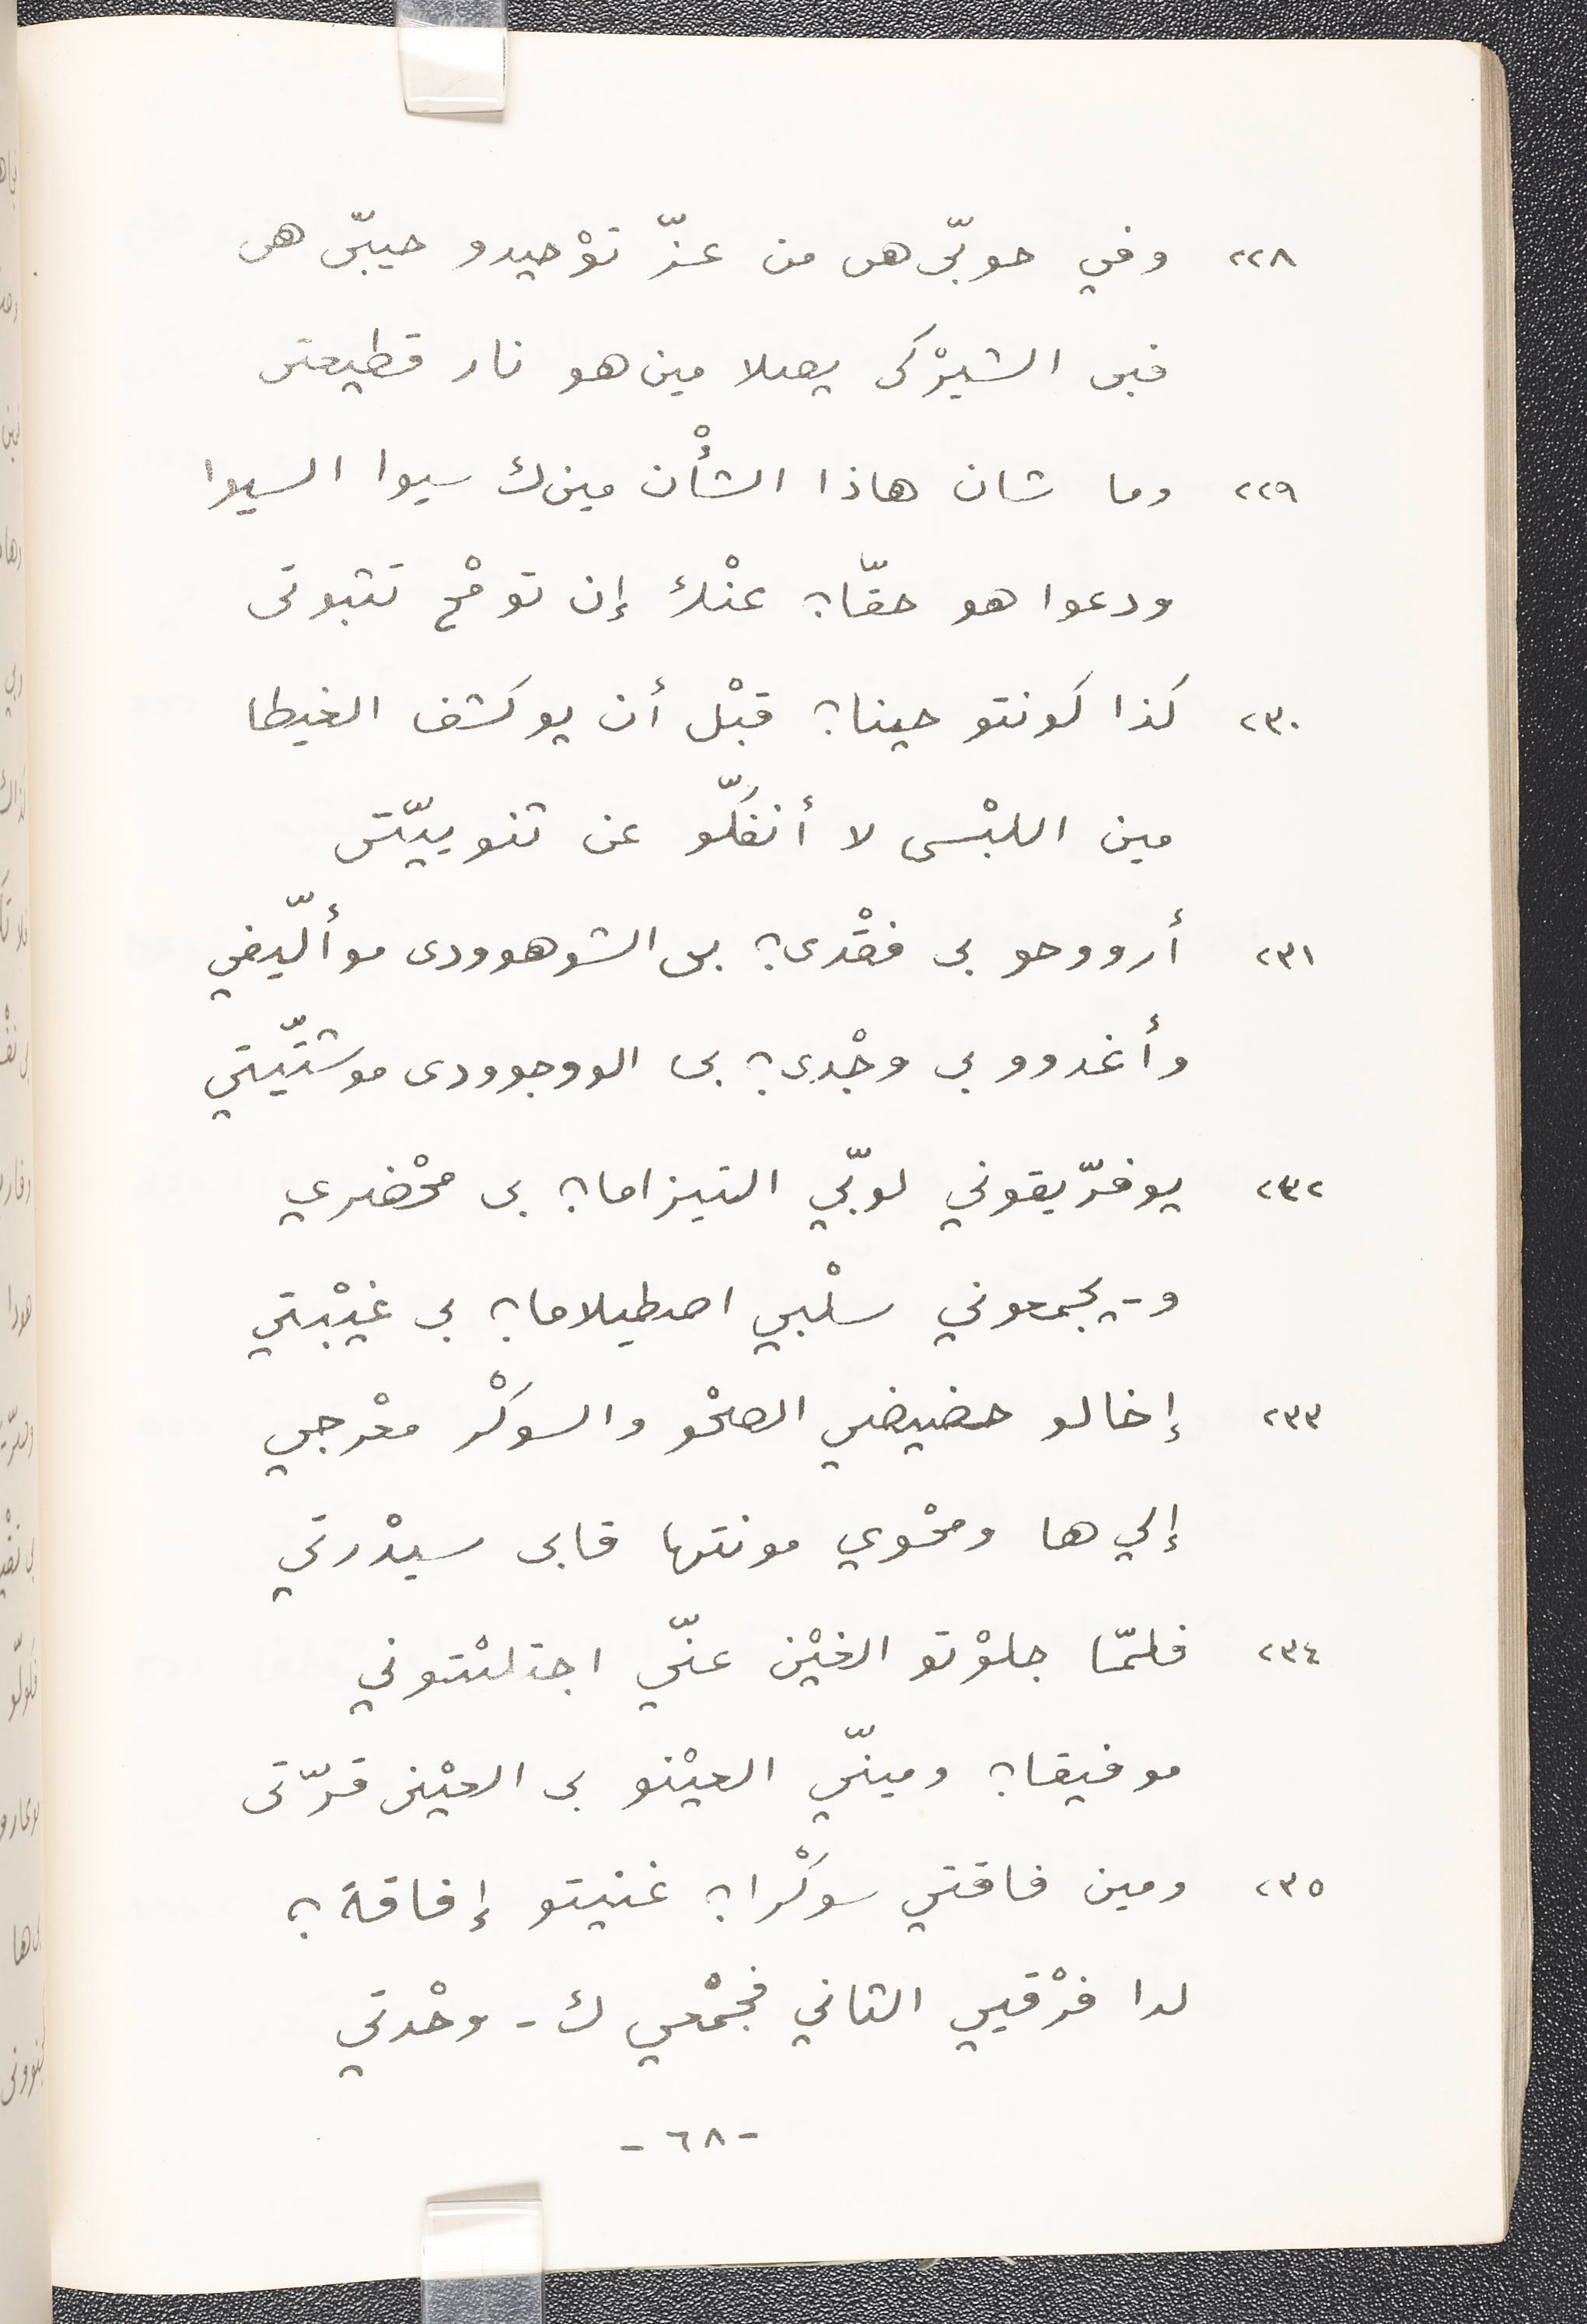 ٢٢٨ وفي حوبّى هى من عزّ توْحيدو حيبّى هى
فبى الشيرْكى يصلا مين هو نار قطيعتى
٢٢٩ وما شان هاذا الشأْن مين ك سيوا السيوا
ودعوا هو حقّا؟ عنْك إن توفْح تثبوتى
٢٣٠ كذا كونتو حينا؟ قبْل أن يوكشف الغيطا
مين اللبْسى لا أنفكّو عن تنوييّتى
٢٣١ أرووحو بى فقْدى؟ بى الشوهوودى موألّيفي
وأغدوو بي وجْدى؟ بى الووجوودى موشتّيتي
٢٣٢ يوفرّيقوني لوبّي التيزاما؟ بى محْضري
و-يجمعوني سلْبي اصطيلاما؟ بى غيْبتي
٢٣٣ إخالو حضيضي الصحْو والسوكْر معْرجي
إلي ها ومحْوي مونتها قابى سيدْرتي
٢٣٤ فلمّا جلوْتو الغيْن عنّي اجتليْتوني
موفيقا؟ ومينّي العيْنو بى العيْنى قرّتى
٢٣٥ ومين فاقتي سوكْرا؟ غنيتو إفاقة؟
لدا فرْقيي الثاني فجمْعي ك- وحْدتي
-٦٨-